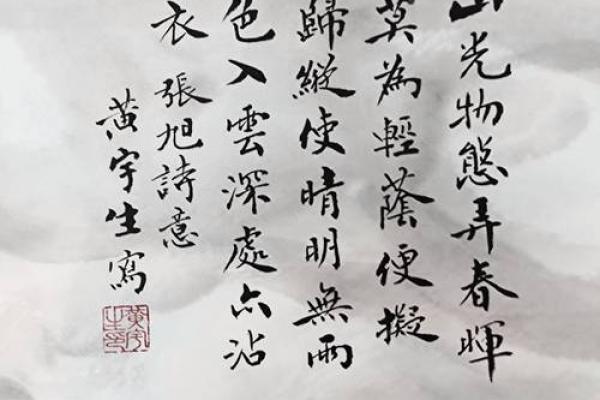 山光物態弄春暉
莫為輕蔭便擬
歸縱使晴明無雨
色入雲深處亦沾
衣
張旭詩意
黄宇生寫
黄宇生印